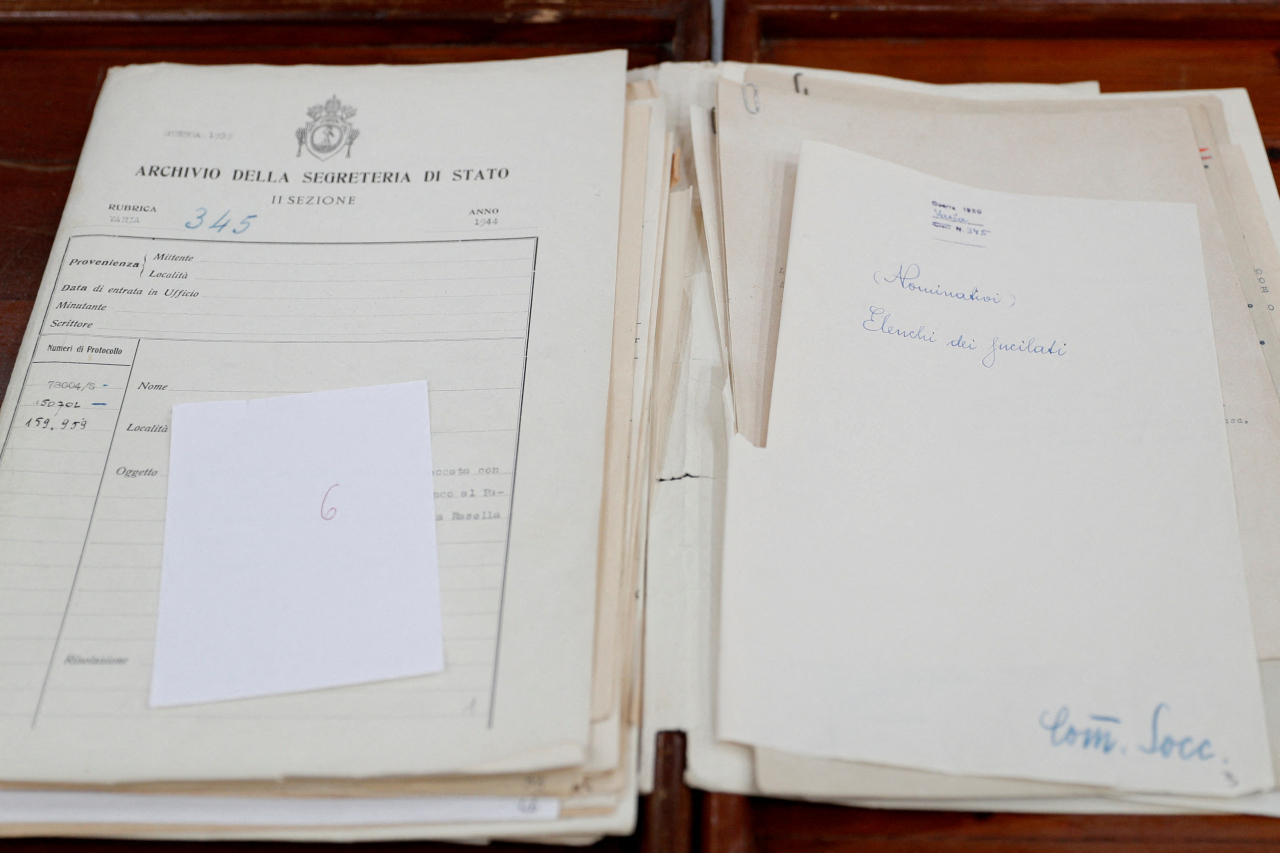 GUERRA 1939
ARCHIVIO DELLA SEGRETERIA DI STATO
II SEZIONE
RUBRICA
VARIA
345
ANNO
1944
Provenienza
Mittente
Località
Data di entrata in Ufficio
Minutante
Scrittore
Numeri di Protocollo
78004/S -
50702 -
159.959
Nome
Località
Oggetto
6
con
al Ri-
a Rasella
Risoluzione
1
Guerra 1939
Varia
N. 345
(Nominativi)
Elenchi dei fucilati
Com. Socc.